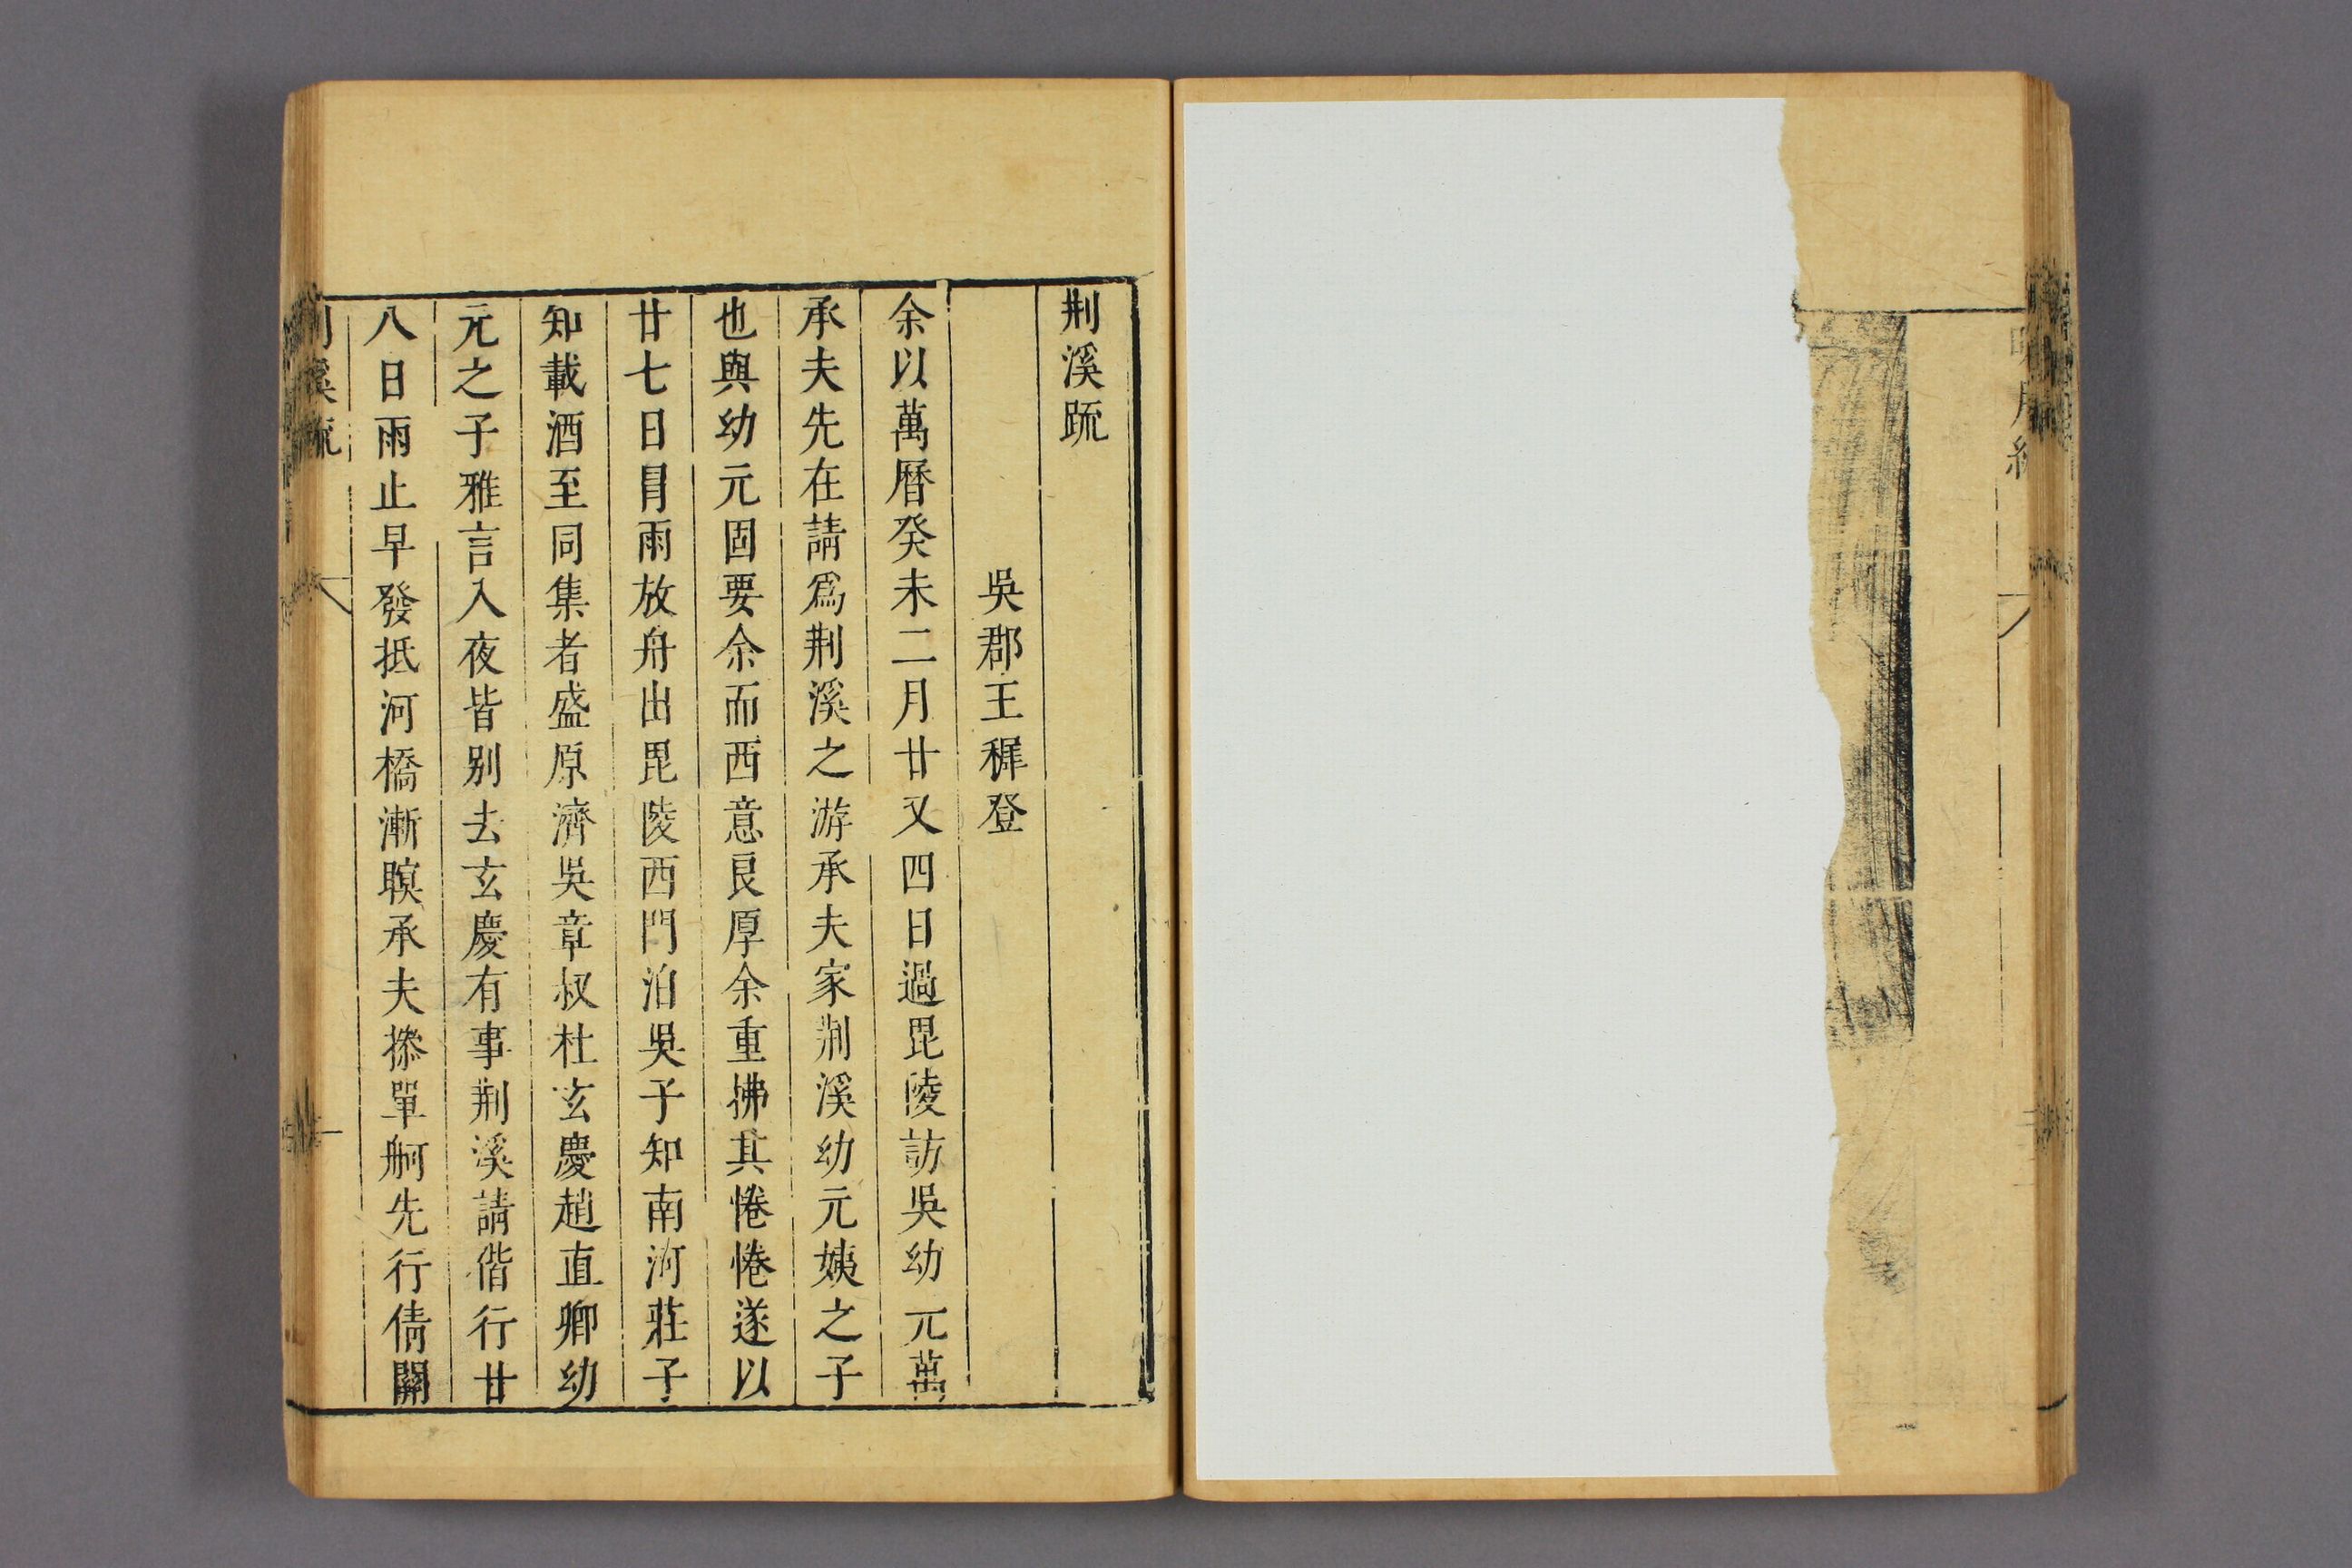 荆溪䟽
吳郡王穉登
余以萬曆癸未二月廿又四日過毘陵訪吳幼元萬
承夫先在請爲荆溪之游承夫家荆溪幼元姨之子
也與幼元固要余而西意良厚余重拂其惓惓遂以
廿七日冐雨放舟出毘陵西門泊吳子知南河莊子
知載酒至同集者盛原濟吳章叔杜玄慶趙直卿幼
元之子雅言入夜皆别去玄慶有事荆溪請偕行廿
八日雨止早發抵河橋漸暝承夫搽單舸先行倩關